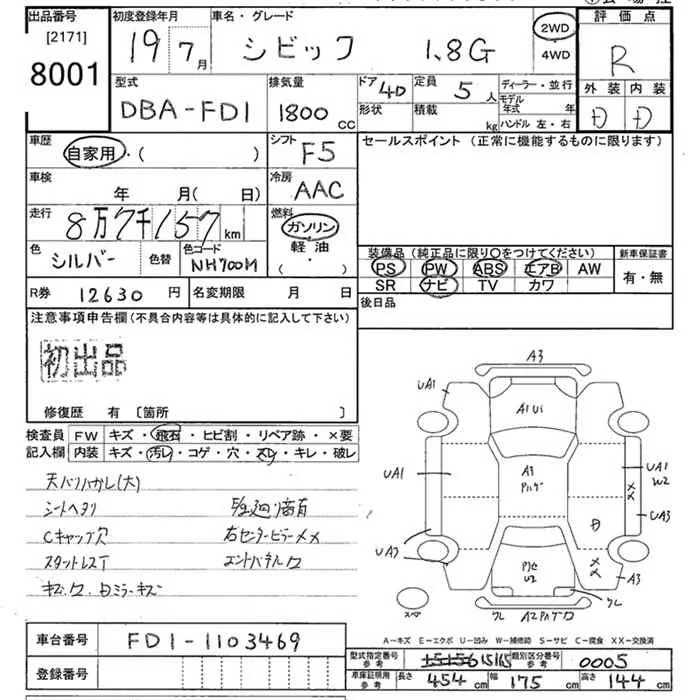 出品番号 初度登録年月 車名・グレード 評価点
[2171] 8001
19年7月 シビック 1.8G 2WD 4WD R
型式 排気量 ドア 4D 定員 5人 ディーラー・並行
DBA-FD1 1800cc 形状 積載 kg モデル年式 年 ハンドル 左・右
外装 内装
D D
車歴 自家用・( ) シフト F5
セールスポイント (正常に機能するものに限ります)
車検 年 月(日) 冷房 AAC
走行 8万7千157km 燃料 ガソリン 軽油 ( ・ )
色 シルバー 色替 色コード NH700M
装備品 (純正品に限り○をつけてください) 新車保証書
PS PW ABS エアB AW 有・無
SR ナビ TV カワ
R券 12630円 名変期限 月 日
後日品
注意事項申告欄(不具合内容等は具体的に記入して下さい)
初出品
修復歴 有 [箇所 ]
検査員 FW キズ・飛石・ヒビ割・リペア跡・×要
記入欄 内装 キズ・汚レ・コゲ・穴・スレ・キレ・破レ
シートヘタリ
Cキャップ欠
右センターピラー××
スタットレスT エンドパネルワ
A3
UA1
A1 U1
UA1
UA1
W2
××
UA3
UA2
D
××
A3
スペア
A-キズ E-エクボ U-凹み W-補修跡 S-サビ C-腐食 XX-交換済
車台番号 FD1-1103469
型式指定番号 参考 15165 類別区分番号 参考 0005
登録番号
車庫証明用 参考 長さ 454cm 幅 175cm 高さ 144cm